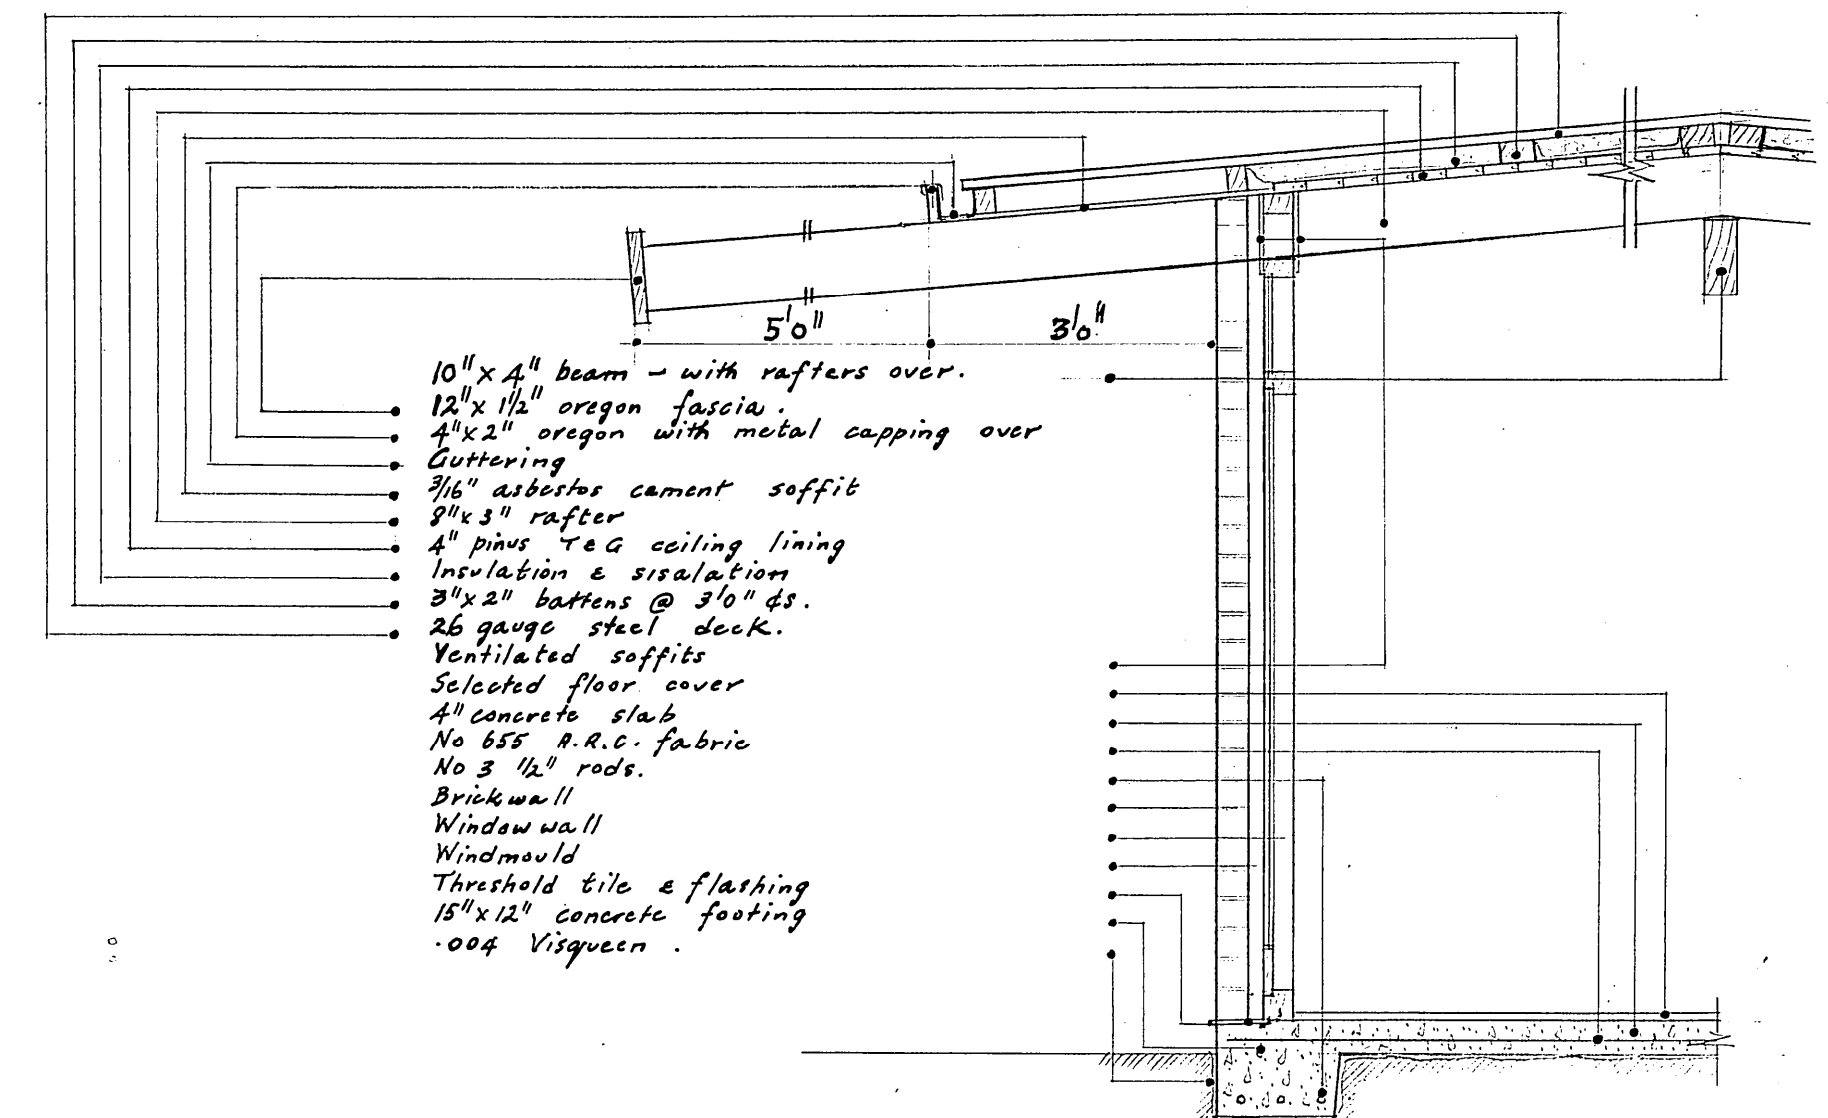 5'0"
3'0"
10" x 4" beam - with rafters over.
12" x 1 1/2" oregon fascia.
4" x 2" oregon with metal capping over
Guttering
3/16" asbestos cement soffit
8" x 3" rafter
4" pinus T & G ceiling lining
Insulation & sisalation
3" x 2" battens @ 3'0" ¢s.
26 gauge steel deck.
Ventilated soffits
Selected floor cover
4" concrete slab
No 655 A.R.C. fabric
No 3 1/2" rods.
Brickwall
Windowwall
Windmould
Threshold tile & flashing
15" x 12" concrete footing
.004 Visqueen.